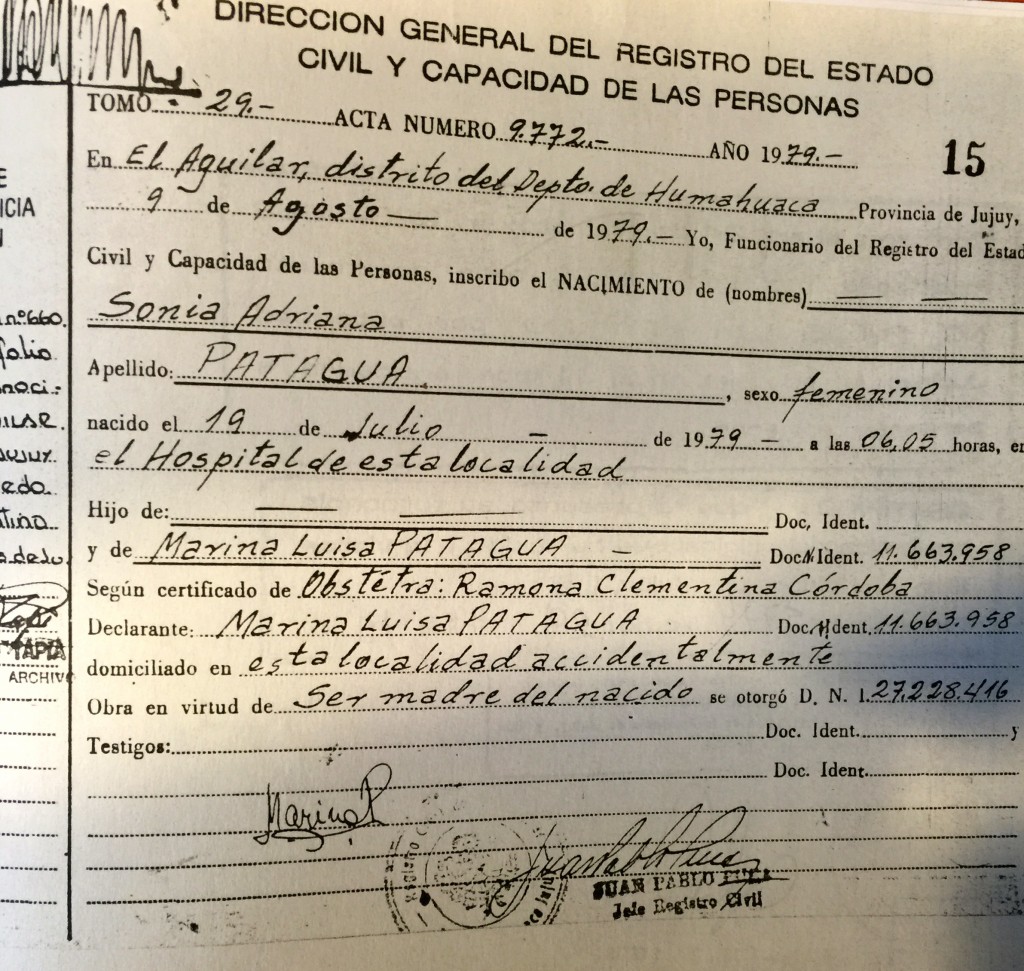 DIRECCION GENERAL DEL REGISTRO DEL ESTADO
CIVIL Y CAPACIDAD DE LAS PERSONAS
TOMO 29.- ACTA NUMERO 9.772.- AÑO 1979.- 15
En El Aguilar, distrito del Depto. de Humahuaca Provincia de Jujuy,
9 de Agosto de 1979.- Yo, Funcionario del Registro del Estad
Civil y Capacidad de las Personas, inscribo el NACIMIENTO de (nombres)
Sonia Adriana
Apellido: PATAGUA, sexo femenino
nacido el 19 de Julio - de 1979 - a las 06,05 horas, en
el Hospital de esta localidad
Hijo de: Doc, Ident.
y de Marina Luisa PATAGUA - Doc. Ident. 11.663.958
Según certificado de Obstétra: Ramona Clementina Córdoba
Declarante: Marina Luisa PATAGUA Doc. Ident. 11.663.958
domiciliado en esta localidad accidentalmente
Obra en virtud de Ser madre del nacido se otorgó D. N. I. 27.228.416
Testigos: Doc. Ident. y
Doc. Ident.
Marina P
JUAN PABLO
Jefe Registro Civil
ICIA
nº660.
folio
naci-
JUJUY.
edo.
TAPIA
ARCHIVO